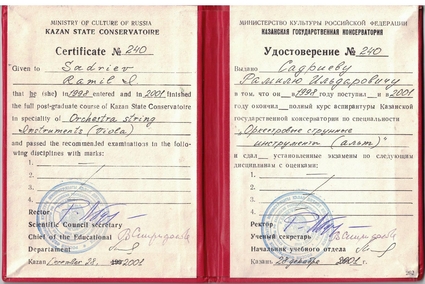 MINISTRY OF CULTURE OF RUSSIA
KAZAN STATE CONSERVATOIRE
Certificate № 240
Given to Sadriev
Ramil I
that he (she) in 1998 entered and in 2001 finished
the full post-graduate course of Kazan State Conservatoire
in speciality of Orchestra string
Instruments (Viola)
and passed the recommended examinations in the follo-
wing disciplines with marks:
1.
2.
3.
4.
Rector
Scientific Council secretary
Chief of the Educational
Departament
Kazan December 28 2001
МИНИСТЕРСТВО КУЛЬТУРЫ РОССИЙСКОЙ ФЕДЕРАЦИИ
КАЗАНСКАЯ ГОСУДАРСТВЕННАЯ КОНСЕРВАТОРИЯ
Удостоверение № 240
Выдано Садриеву
Рамилю Ильдаровичу
в том, что он в 1998 году поступил и в 2001
году окончил полный курс аспирантуры Казанской
государственной консерватории по специальности
"Оркестровые струнные
инструменты (альт)"
и сдал установленные экзамены по следующим
дисциплинам с оценками:
1.
2.
3.
4.
Ректор
Ученый секретарь
Начальник учебного отдела
Казань 28 декабря 2001 г.